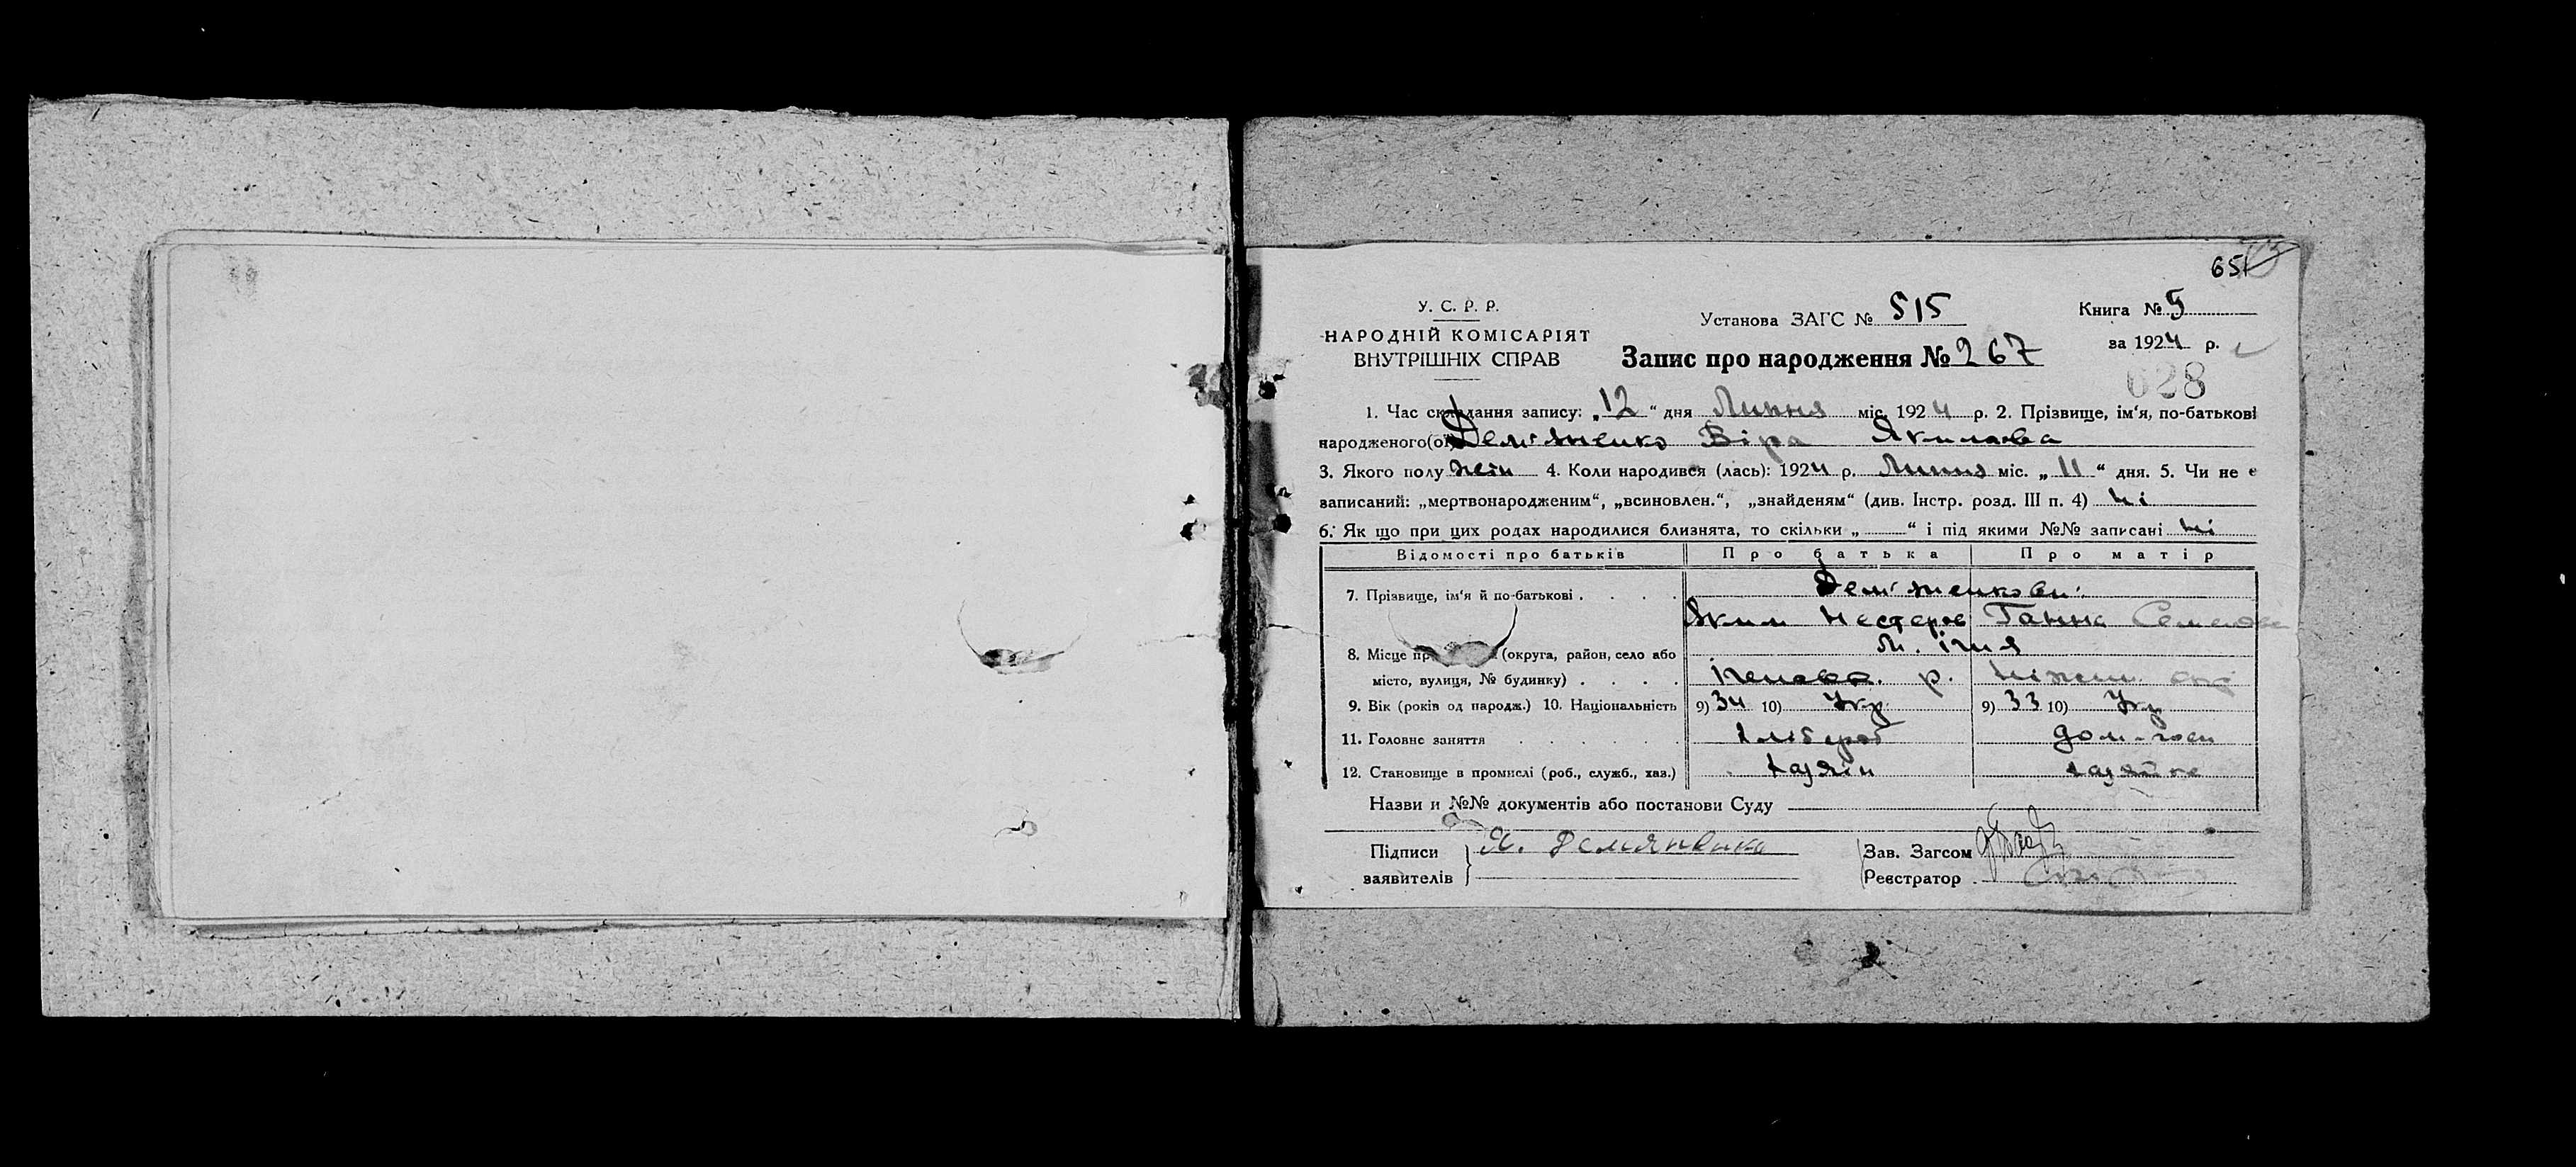 651
У. С. Р. Р.
НАРОДНІЙ КОМІСАРІЯТ
ВНУТРІШНІХ СПРАВ
Установа ЗАГС № 515
Книга № 5
Запис про народження № 267
за 1924 р.
628
1. Час складання запису: „12“ дня Липня міс. 1924 р. 2. Прізвище, ім'я, по-батькові
народженого(ої) Дем'яненко Віра Якимовна
3. Якого полу жін 4. Коли народився (лась): 1924 р. Липня міс. „11“ дня. 5. Чи не є
записаний: „мертвонародженим“, „всиновлен.“, „знайденям“ (див. Інстр. розд. III п. 4) ні
6. Як що при цих родах народилися близнята, то скільки „ “ і під якими №№ записані ні
Відомості про батьків Про батька Про матір
7. Прізвище, ім'я й по-батькові . . . . Дем'яненкови:
Яким Нестеров Ганна Семенов
8. Місце (округа, район, село або М. Ічня
місто, вулиця, № будинку) . . . . Іченського р. Ніжин. окр
9. Вік (років од народж.) 10. Національність 9) 34 10) Укр 9) 33 10) Укр
11. Головне заняття . . . . . . Хлібороб дом-госп
12. Становище в промислі (роб., служб., хаз.) Хазяїн хазяйка
Назви и №№ документів або постанови Суду
Підписи Я. Демяненко Зав. Загсом
заявителів Реєстратор